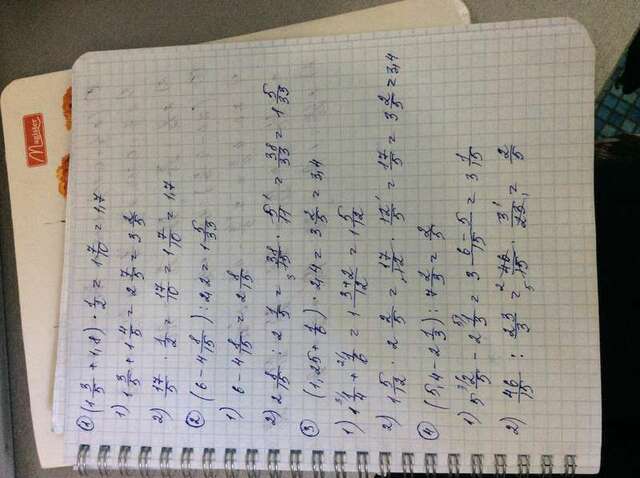 Magister
① (1 3/5 + 1,8) · 1/2 = 1 7/10 = 1,7
1) 1 3/5 + 1 4/5 = 2 7/5 = 3 2/5
2) 17/5 · 1/2 = 17/10 = 1 7/10 = 1,7
② (6 - 4 8/15) : 2,2 = 1 5/33
1) 6 - 4 8/15 = 2 8/15
2) 2 8/15 : 2 1/5 = 38/15 · 5/11 = 38/33 = 1 5/33
③ (1,25 + 1/6) · 2,4 = 3 2/5 = 3,4
1) 1 1/4 + 1/6 = 1 3+2/12 = 1 5/12
2) 1 5/12 · 2 2/5 = 17/12 · 12/5 = 17/5 = 3 2/5 = 3,4
④ (5,4 - 2 1/3) : 7 2/3 = 2/5
1) 5 2/5 - 2 1/3 = 3 6-5/15 = 3 1/15
2) 46/15 : 23/3 = 46/15 · 3/23 = 2/5